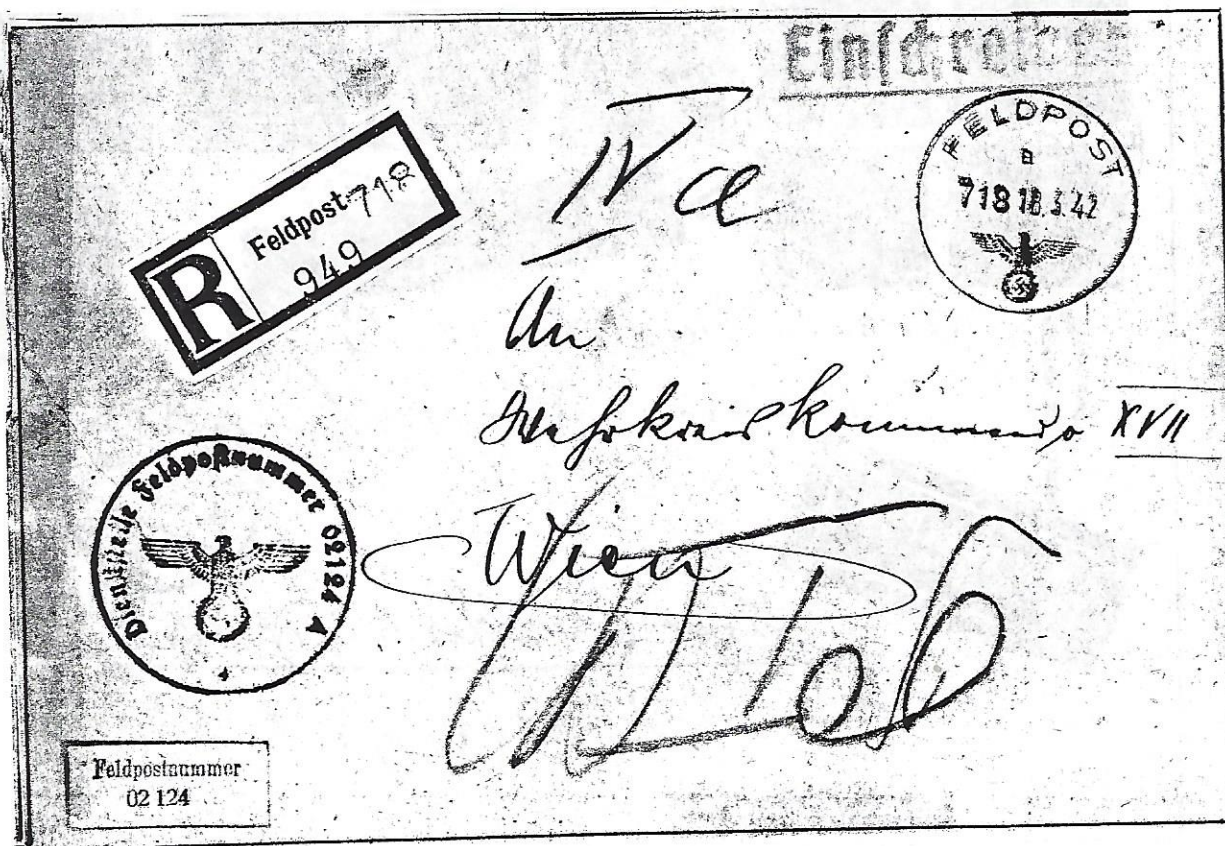 Einschreiben
FELDPOST
a
718 18.3.42
R
Feldpost 718
949
IV a
An
Wehrkreiskommando XVII
Wien
Dienststelle Feldpostnummer 02124 A
Feldpostnummer
02 124